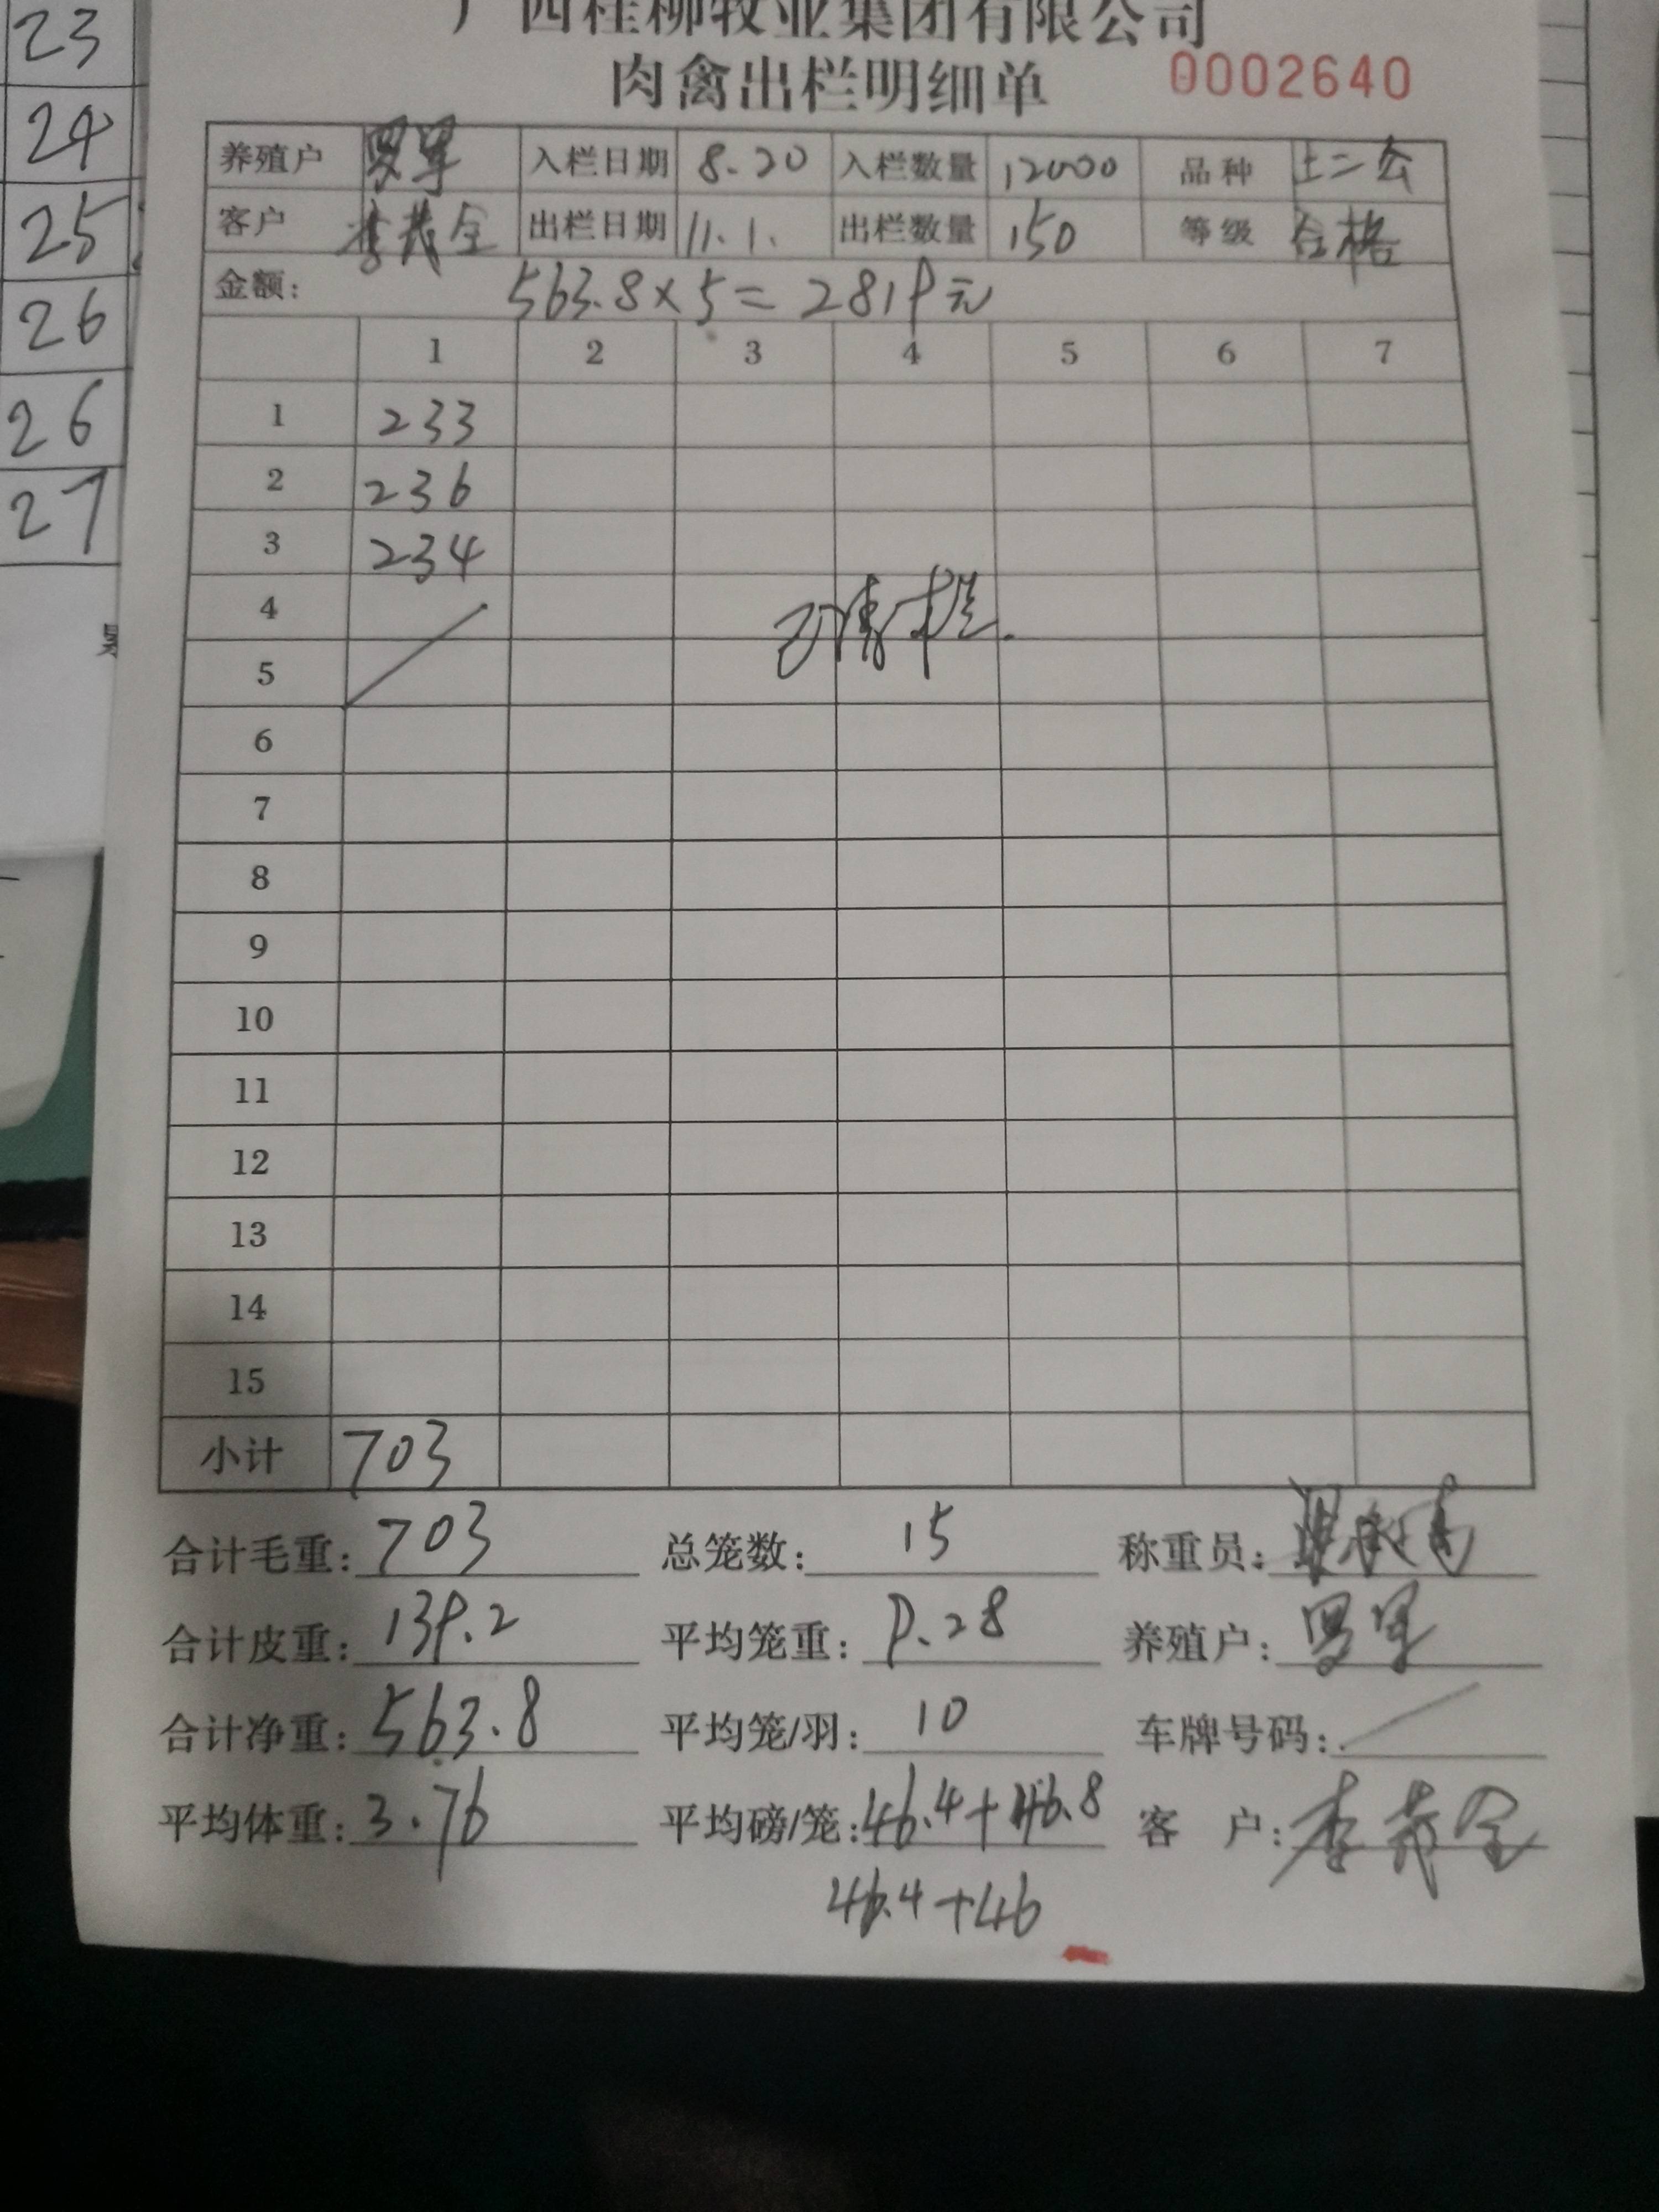 广西桂柳牧业集团有限公司
肉禽出栏明细单 0002640
养殖户 罗军 入栏日期 8.20 入栏数量 12000 品种 土二公
客户 李茂全 出栏日期 11.1. 出栏数量 150 等级 合格
金额: 563.8×5=2819元
1 2 3 4 5 6 7
1 233
2 236
3 234
4
5
6
7
8
9
10
11
12
13
14
15
小计 703
合计毛重: 703 总笼数: 15 称重员:
合计皮重: 139.2 平均笼重: 9.28 养殖户: 罗军
合计净重: 563.8 平均笼/羽: 10 车牌号码:
平均体重: 3.76 平均磅/笼: 46.4+46.8 客 户: 李茂全
46.4+46
23
24
25
26
26
27